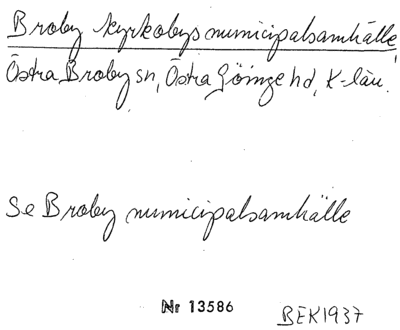 Broby kyrkobys municipalsamhälle
Östra Broby sn, Östra Göinge hd, K-län.
Se Broby municipalsamhälle
Nr 13586
BEK1937